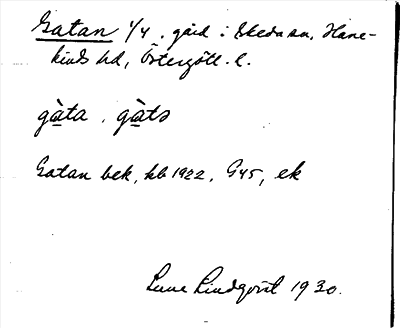 Gatan 1/4. gård i Skeda sn, Hane-
kinds hd, Östergötl. l.
gàta . gàtǝ
Gatan bek, kb 1922, G45, ek
Sune Lindqvist 1930.